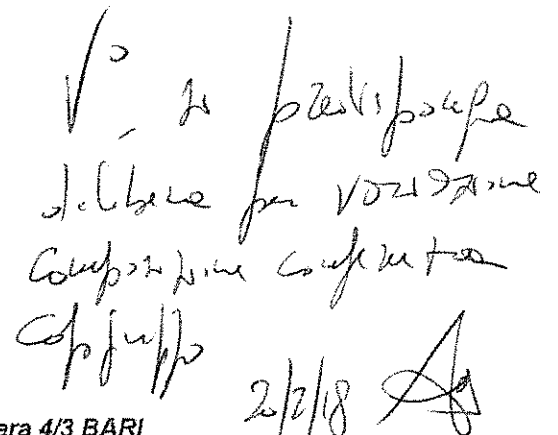 V° si predisponga
delibera per variazione
composizione conferenza
capigruppo
20/2/18
ara 4/3 BARI